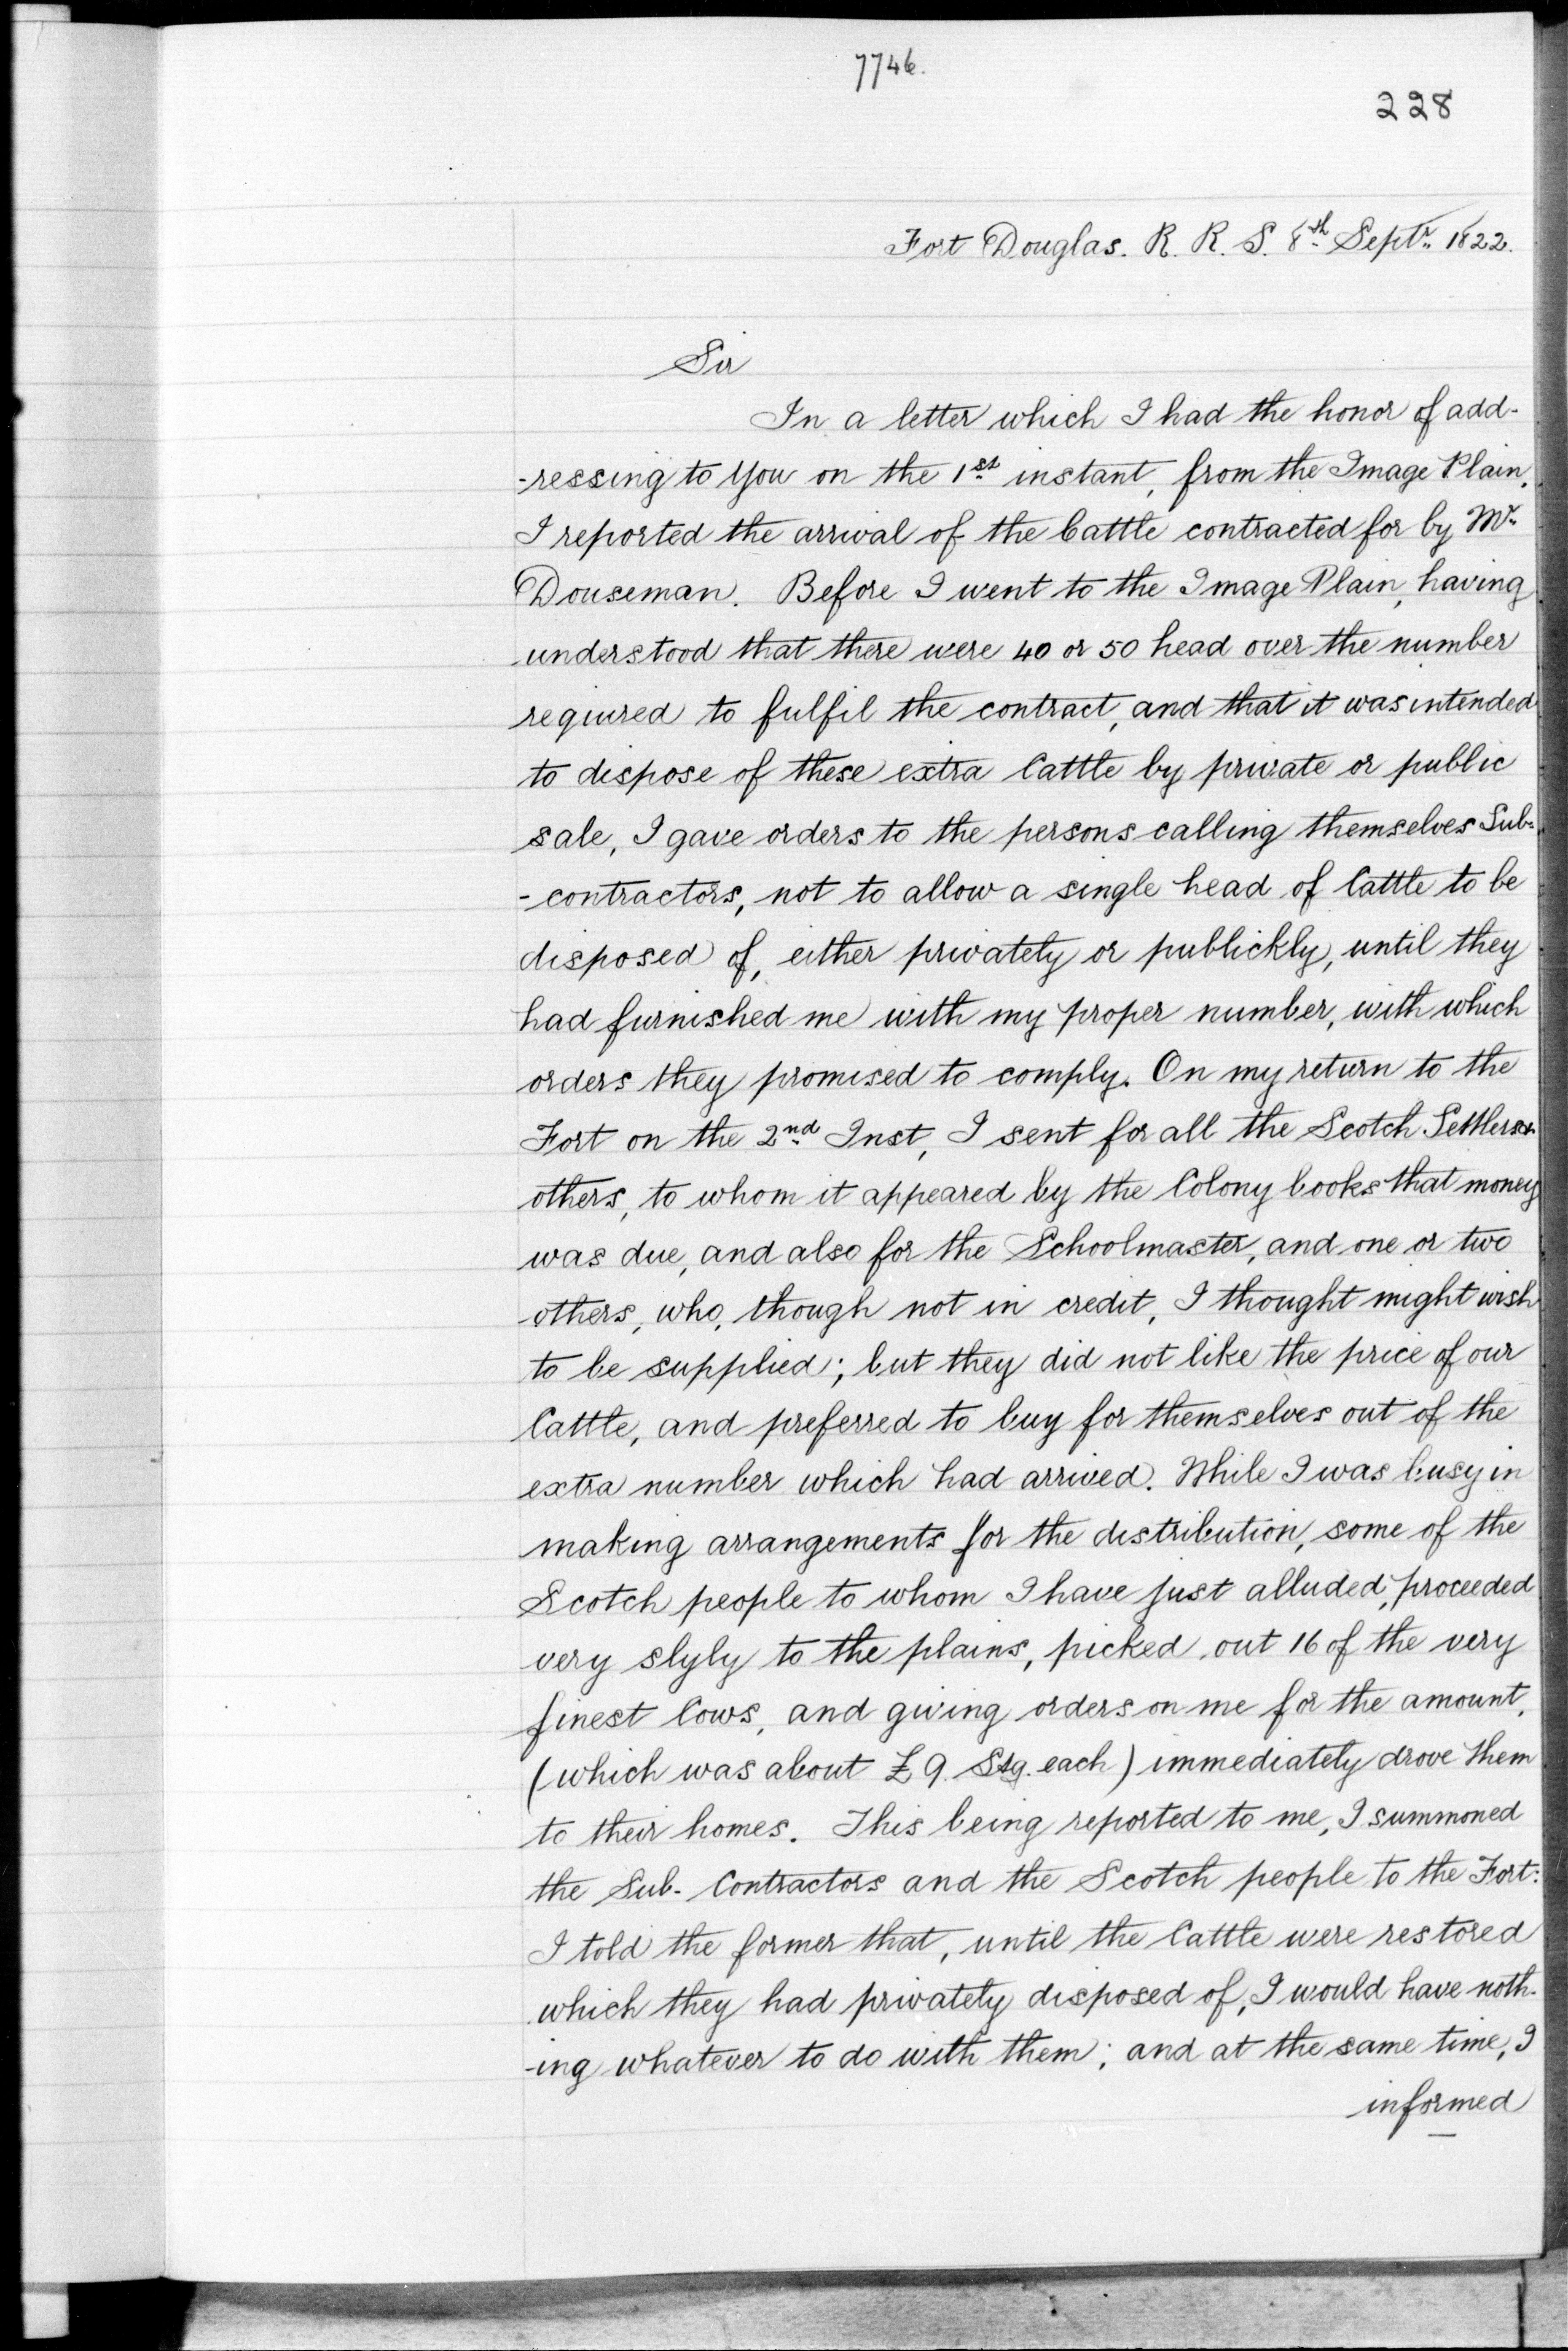 7746.
228
Fort Douglas. R. R. S. 8th Septr. 1822.
Sir
In a letter which I had the honor of add-
-ressing to You on the 1st instant, from the Image Plain,
I reported the arrival of the Cattle contracted for by Mr.
Douseman. Before I went to the Image Plain, having
understood that there were 40 or 50 head over the number
required to fulfil the contract, and that it was intended
to dispose of these extra Cattle by private or public
sale, I gave orders to the persons calling themselves Sub-
-contractors, not to allow a single head of Cattle to be
disposed of, either privately or publickly, until they
had furnished me with my proper number, with which
orders they promised to comply. On my return to the
Fort on the 2nd Inst, I sent for all the Scotch Settlers &
others, to whom it appeared by the Colony books that money
was due, and also for the Schoolmaster, and one or two
others, who, though not in credit, I thought might wish
to be supplied; but they did not like the price of our
Cattle, and preferred to buy for themselves out of the
extra number which had arrived. While I was busy in
making arrangements for the distribution, some of the
Scotch people to whom I have just alluded, proceeded
very slyly to the plains, picked out 16 of the very
finest Cows, and giving orders on me for the amount,
(which was about £9. Stg. each) immediately drove them
to their homes. This being reported to me, I summoned
the Sub-Contractors and the Scotch people to the Fort:
I told the former that, until the Cattle were restored
which they had privately disposed of, I would have noth-
-ing whatever to do with them; and at the same time, I
informed